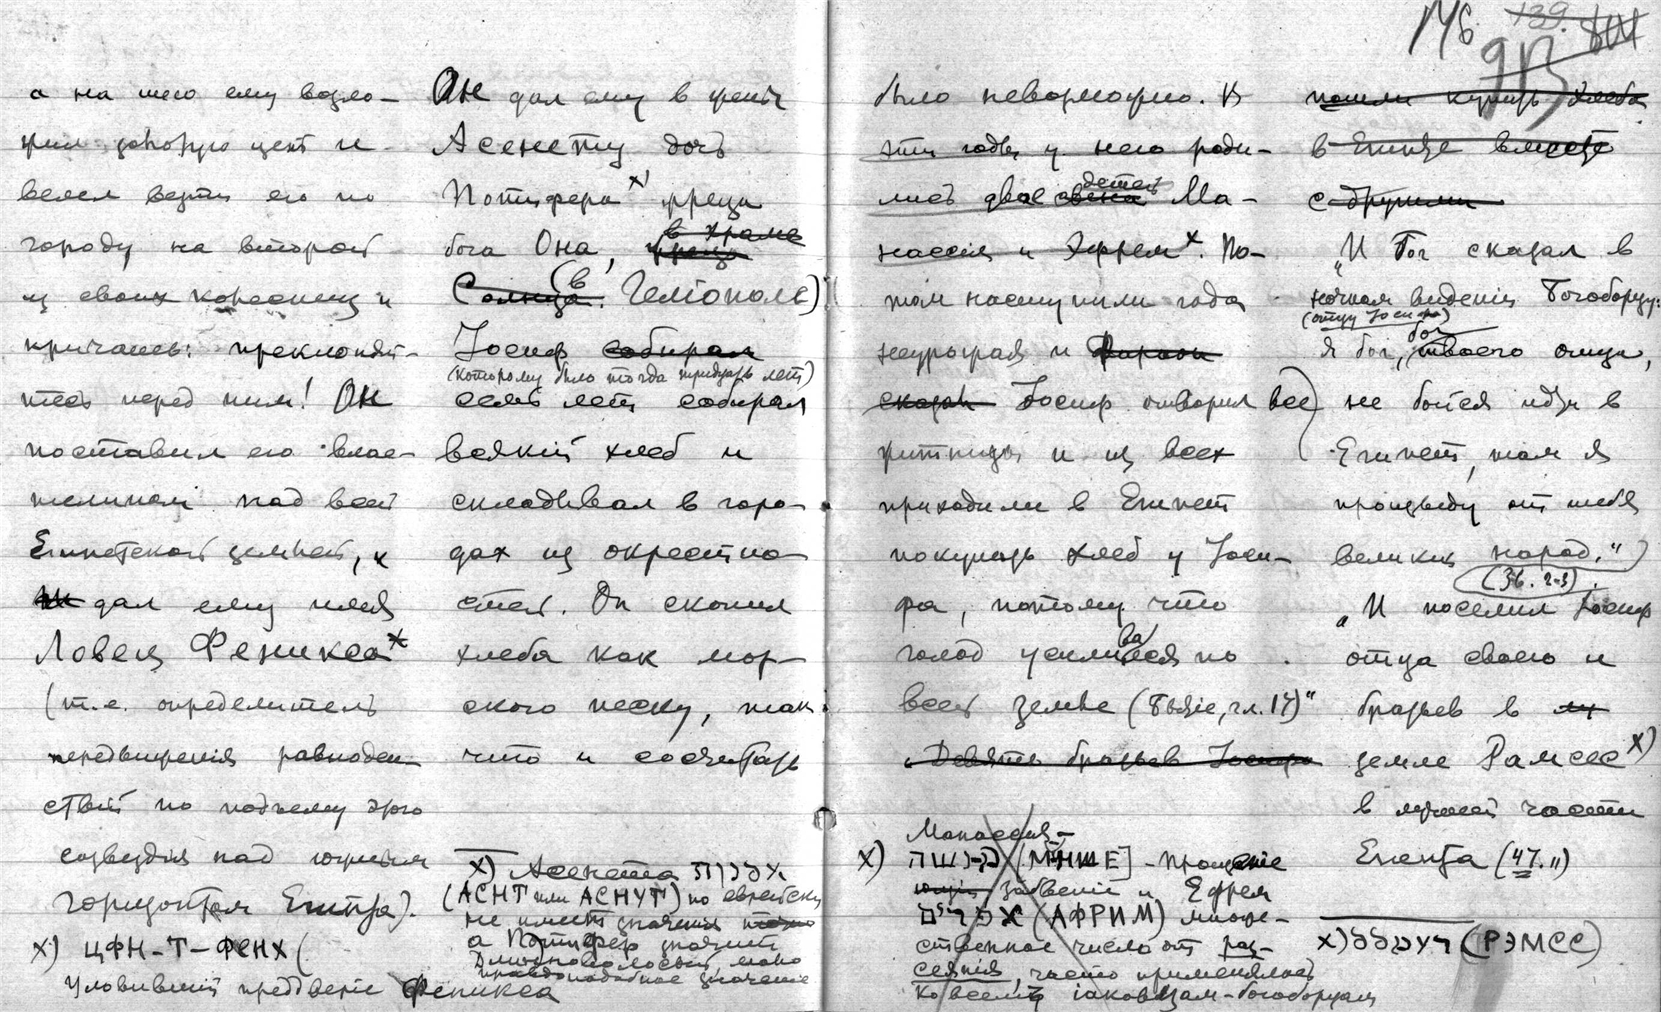 а на шею ему возло-
жил золотую цепь и
велел везти его по
городу на второй
из своих колесниц и
кричать: преклоняй-
тесь перед ним! Он
поставил его влас-
телином над всей
Египетской землей, и
дал ему имя
Ловец Феникса x
(т.е. определитель
передвижения равноден-
ствий по подъему этого
созвездия над южным
горизонтом Египта).
x) ЦФН-Т-ФЕНХ (
Уловивший предверие Феникса
Он дал ему в жены
Асенету дочь
Потифера x) жреца
бога Она, жреца в храме
Солнца. (в Гелиополе)
Иосиф собирал
(которому было тогда тридцать лет)
семь лет собирал
всякий хлеб и
складывал в горо-
дах из окрестно-
стей. Он скопил
хлеба как мор-
ского песку, так
что и сосчитать
x) Асенета אסנת
(АСНТ или АСНУТ) по еврейски
не имеет значения
а Потифер
правдоподобное значение
146 139
913
было невозможно. В
эти годы у него роди-
лись двое детей Ма-
нассия и Эфрем x. По-
том наступили года
неурожая и фараон
сказал Иосиф отворил все
житницы и из всех
приходили в Египет
покупать хлеб у Иоси-
фа, потому что
голод усиливался по
всей земле (Бытие, гл. 17)"
Девять братьев Иосифа
Манассия -
x) מנשה (МНШЕ] - Прощение
забвение и Ефрем
אפרים (АФРИМ) множе-
ственное число от рас-
сеяния, часто применялось
ко всем иаковцам-богоборцам
пошли купить хлеба
в Египте вместе
с другими
„И Бог сказал в
ночном видении Богоборцу:
(отцу Иосифа)
Я бог, бог твоего отца,
не бойся идти в
Египет, там я
произведу от тебя
великий народ."
(36. 2-3).
„И поселил Иосиф
отца своего и
братьев в
земле Рамсес x)
в лучшей части
Египта (47. 11)
x) רעמסס (РЭМСС)